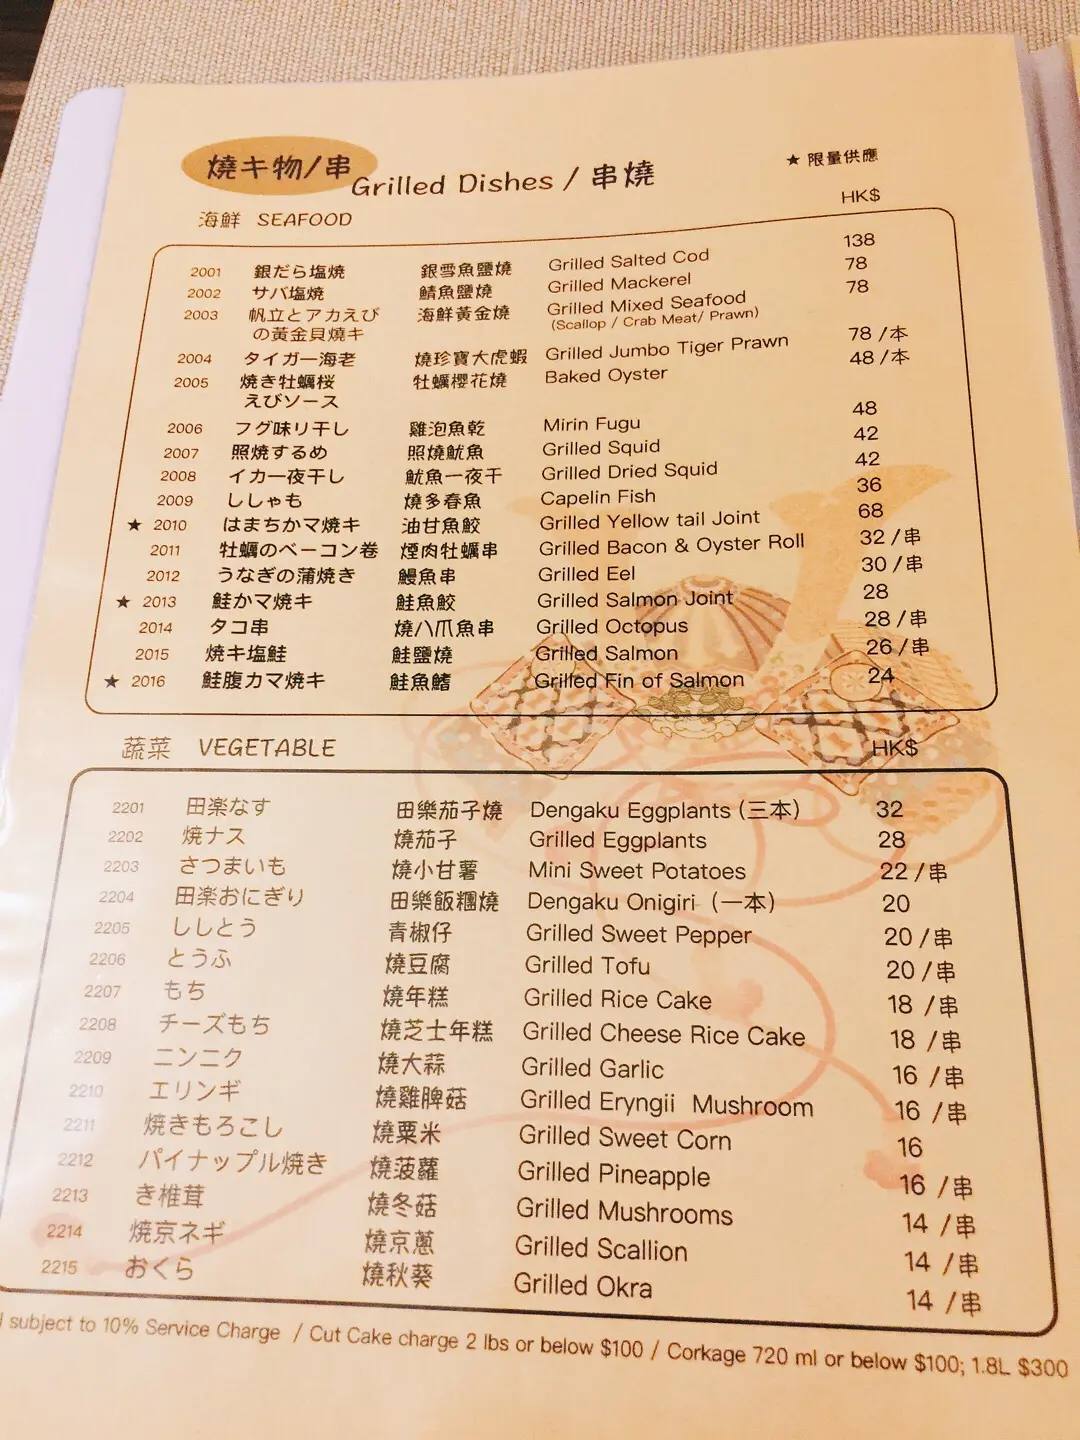 燒キ物/串 Grilled Dishes / 串燒 ★ 限量供應
海鮮 SEAFOOD HK$
2001 銀だら塩焼 銀雪魚鹽燒 Grilled Salted Cod 138
2002 サバ塩焼 鯖魚鹽燒 Grilled Mackerel 78
2003 帆立とアカえび 海鮮黃金燒 Grilled Mixed Seafood 78
の黃金貝燒キ (Scallop / Crab Meat/ Prawn)
2004 タイガー海老 燒珍寶大虎蝦 Grilled Jumbo Tiger Prawn 78 /本
2005 焼き牡蠣桜 牡蠣櫻花燒 Baked Oyster 48 /本
えびソース
2006 フグ味リ干し 雞泡魚乾 Mirin Fugu 48
2007 照焼するめ 照燒魷魚 Grilled Squid 42
2008 イカ一夜干し 魷魚一夜干 Grilled Dried Squid 42
2009 ししゃも 燒多春魚 Capelin Fish 36
★ 2010 はまちかマ焼キ 油甘魚鮫 Grilled Yellow tail Joint 68
2011 牡蠣のベーコン卷 煙肉牡蠣串 Grilled Bacon & Oyster Roll 32 /串
2012 うなぎの蒲焼き 鰻魚串 Grilled Eel 30 /串
★ 2013 鮭かマ焼キ 鮭魚鮫 Grilled Salmon Joint 28
2014 タコ串 燒八爪魚串 Grilled Octopus 28 /串
2015 焼キ塩鮭 鮭鹽燒 Grilled Salmon 26 /串
★ 2016 鮭腹カマ焼キ 鮭魚鰭 Grilled Fin of Salmon 24
蔬菜 VEGETABLE HK$
2201 田楽なす 田樂茄子燒 Dengaku Eggplants (三本) 32
2202 焼ナス 燒茄子 Grilled Eggplants 28
2203 さつまいも 燒小甘薯 Mini Sweet Potatoes 22 /串
2204 田楽おにぎり 田樂飯糰燒 Dengaku Onigiri (一本) 20
2205 ししとう 青椒仔 Grilled Sweet Pepper 20 /串
2206 とうふ 燒豆腐 Grilled Tofu 20 /串
2207 もち 燒年糕 Grilled Rice Cake 18 /串
2208 チーズもち 燒芝士年糕 Grilled Cheese Rice Cake 18 /串
2209 ニンニク 燒大蒜 Grilled Garlic 16 /串
2210 エリンギ 燒雞脾菇 Grilled Eryngii Mushroom 16 /串
2211 焼きもろこし 燒粟米 Grilled Sweet Corn 16
2212 パイナップル焼き 燒菠蘿 Grilled Pineapple 16 /串
2213 き椎茸 燒冬菇 Grilled Mushrooms 14 /串
2214 焼京ネギ 燒京蔥 Grilled Scallion 14 /串
2215 おくら 燒秋葵 Grilled Okra 14 /串
subject to 10% Service Charge / Cut Cake charge 2 lbs or below $100 / Corkage 720 ml or below $100; 1.8L $300